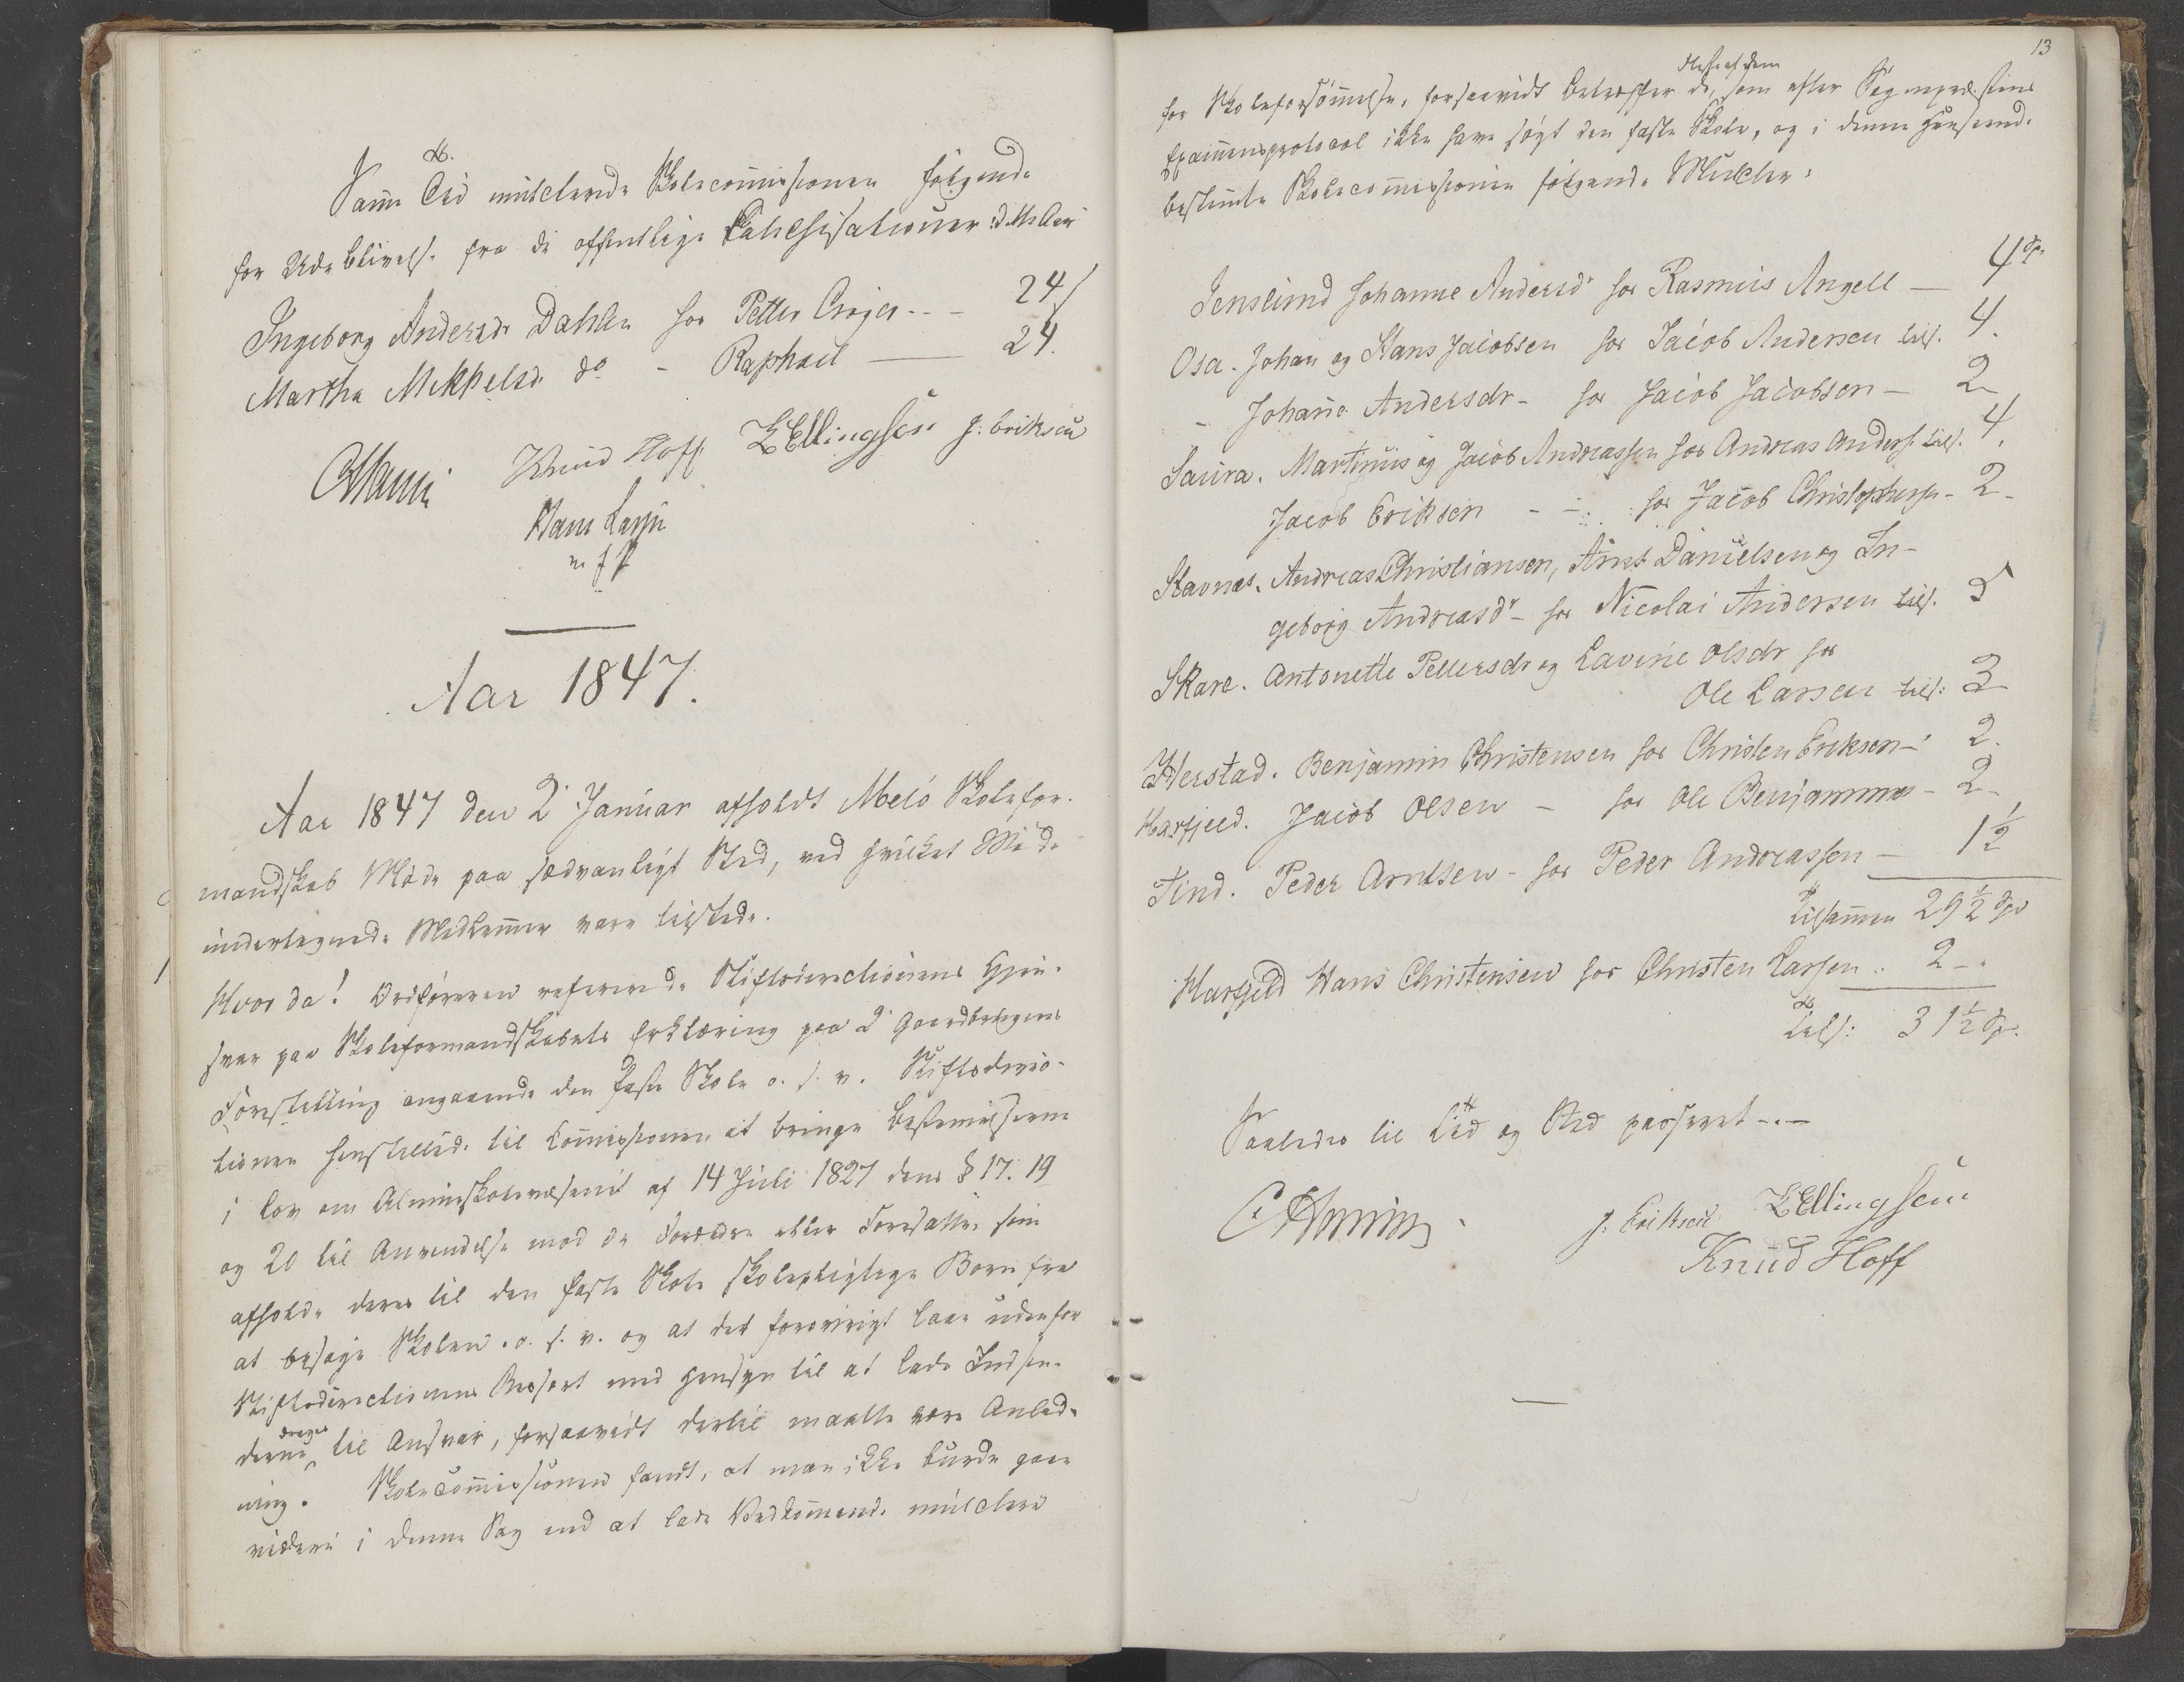 Samme Tid mulcterede Skolecommissionen følgende
for Udeblivelse fra de offentlige Catechisationer dette Aar
Ingeborg Andersdr Dahlen hos Petter Crøger - - - 24 s
Martha Mikkelsd. do - Raphael — 24.
Knud Hoff EEllingsen J: Eriksen
Hans Larsen
m f P
Aar 1847.
Aar 1847 den 2 Januar afholdt Melø Skolefor-
mandskab Møde paa sædvanligt Sted, ved hvilket Møde
undertegnede Medlemmer vare tilstede.
Hvor da! Ordføreren refererede Stiftsdirectionens Gjen-
svar paa Skoleformandskabets Erklæring paa 2 Gaardbrugeres
Forestilling angaaende den faste Skole o. s. v. Stiftsdirec-
tionen henstillede til Commissionen at bringe Bestemmelserne
i Lov om Almueskolevæsenet af 14 Juli 1827 dens § 17. 19
og 20 til Anvendelse mod de Forældre eller Foresatte, som
afholde deres til den faste Skole skolepligtige Børn fra
at besøge Skolen o. s. v. og at det forøvrigt laae udenfor
Stiftsdirectionens Ressort med Hensyn til at lade Indsen-
derne drages til Ansvar, forsaavidt dertil maatte være Anled-
ning. Skolecommissionen fandt, at man ikke burde gaae
videre i denne Sag end at lade Vedkommende mulctere
13
for Skoleforsømmelse, forsaavidt betræffer de, som efter Sognepræstens
Examensprotocol ikke have søgt den faste Skole, og i denne Henseende
bestemte Skolecommissionen følgende Mulcter:
Jenslund Johanne Andersdr hos Rasmus Angell — 4 Sp
Osa. Johan og Hans Jacobsen hos Jacob Andersen tils. 4.
- Johanne Andersdr - hos Jacob Jacobsen — 2
Saura. Martinus og Jacob Andreassen hos Andreas Anders. tils. 4.
Jacob Eriksen - - hos Jacob Christophersen - 2 -
Stavnæs. Andreas Christiansen, Arnt Danielsen og In-
geborg Andreasdr - hos Nicolai Andersen tils. 5
Skare. Antonette Pettersdr og Lavine Olsdr hos
Ole Larsen tils: 3
Ytterstad. Benjamin Christensen hos Christen Eriksen - 2.
Harfjeld. Jacob Olsen - hos Ole Benjaminsen - 2 -
Tind. Peder Arntsen - hos Peder Andreassen — 1 ½
tilsammen 29 ½ Spd
Harfjeld Hans Christensen hos Christen Larsen .. 2 - .
tils: 31 ½ Sp.
Saaledes til Tid og Sted passeret - . -
J. Eriksen EEllingsen
Knud Hoff